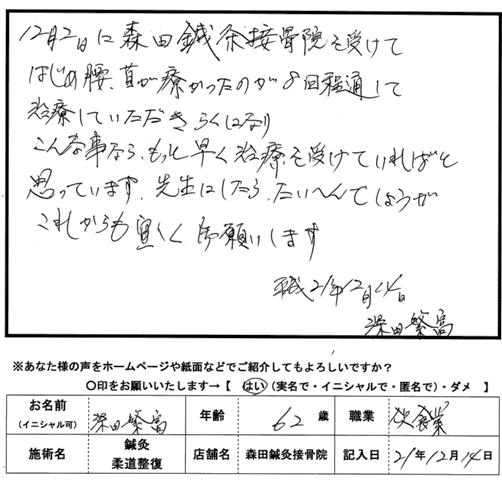 12月2日に森田鍼灸接骨院を受けて
はじめ腰、首が療かったのが8回程通して
治療していただきらくになり
こんな事なら、もっと早く治療を受けていればと
思っています。先生にしたら、たいへんでしょうが
これからも宜しく御願いします
平成21年12月14日
深田繁富
※あなた様の声をホームページや紙面などでご紹介してもよろしいですか？
〇印をお願いいたします→【 はい (実名で・イニシャルで・匿名で)・ダメ 】
お名前 (イニシャル可) 深田繁富 年齢 62歳 職業 飲食業
施術名 鍼灸 柔道整復 店舗名 森田鍼灸接骨院 記入日 21年12月14日